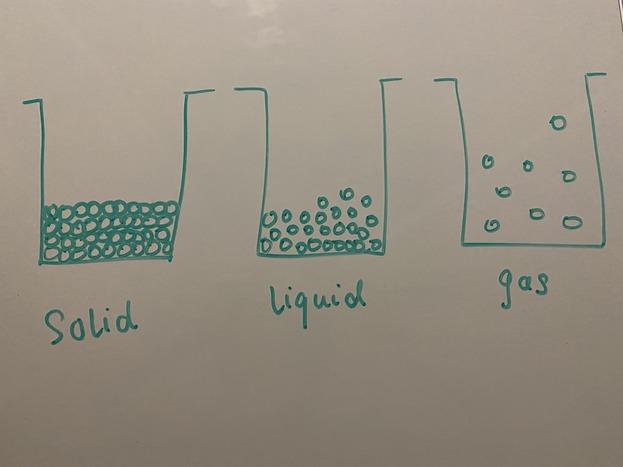 Solid
Liquid
gas